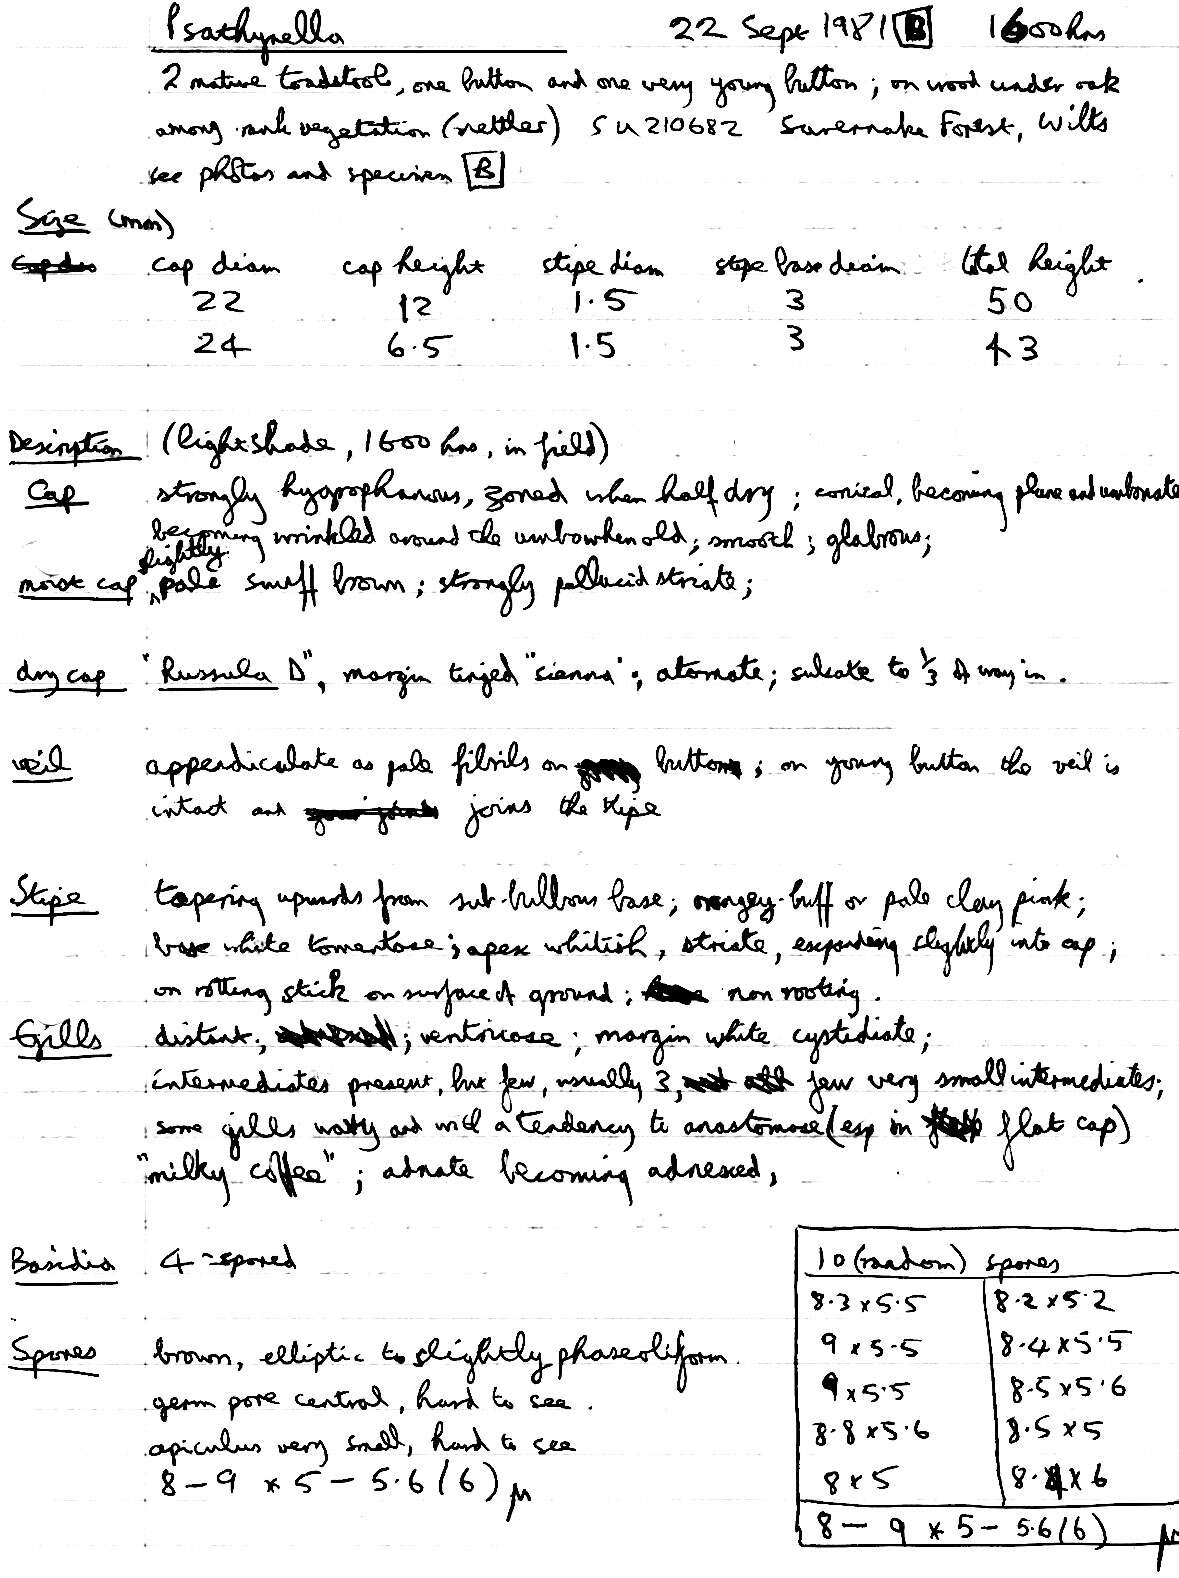 Psathyrella 22 Sept 1981 B 1600 hrs
2 mature toadstools, one button and one very young button; on wood under oak
among rank vegetation (nettles) SU210682 Savernake Forest, Wilts
see photos and specimen B
Size (mm)
cap diam cap height stipe diam stipe base diam total height
22 12 1.5 3 50
24 6.5 1.5 3 43
Description (light shade, 1600 hrs, in field)
Cap strongly hygrophanous, zoned when half dry; conical, becoming plane and umbonate
becoming wrinkled around the umbo when old; smooth; glabrous;
moist cap slightly pale snuff brown; strongly pellucid striate;
dry cap "Russula D", margin tinged "sienna"; atomate; sulcate to 1/3 of way in.
veil appendiculate as pale fibrils on button; on young button the veil is
intact and joins the stipe
Stipe tapering upwards from sub-bulbous base; orangey-buff or pale clay pink;
base white tomentose; apex whitish, striate, expanding slightly into cap;
on rotting stick on surface of ground; non rooting.
Gills distant; ventricose; margin white cystidiate;
intermediates present, but few, usually 3, few very small intermediates;
some gills wavy and with a tendency to anastomose (esp in flat cap)
"milky coffee"; adnate becoming adnexed,
Basidia 4-spored
Spores brown, elliptic to slightly phaseoliform.
germ pore central, hard to see.
apiculus very small, hard to see
8-9 x 5-5.6(6) µ
10 (random) spores
8.3 x 5.5 8.2 x 5.2
9 x 5.5 8.4 x 5.5
9 x 5.5 8.5 x 5.6
8.8 x 5.6 8.5 x 5
8 x 5 x 6
8-9 x 5-5.6(6) µ